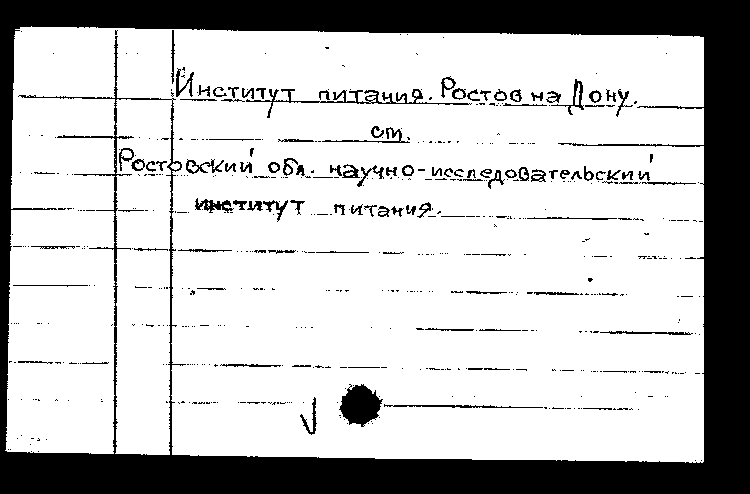 Институт питания. Ростов на Дону.
см.
Ростовский обл. научно-исследовательский
институт питания.